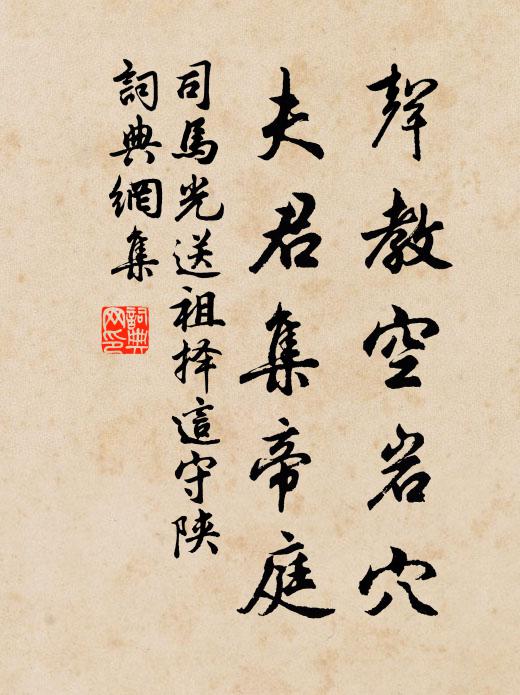 聲教空岩穴
夫君集帝庭
司馬光送祖择這守陝
詞典網集
詞典网印